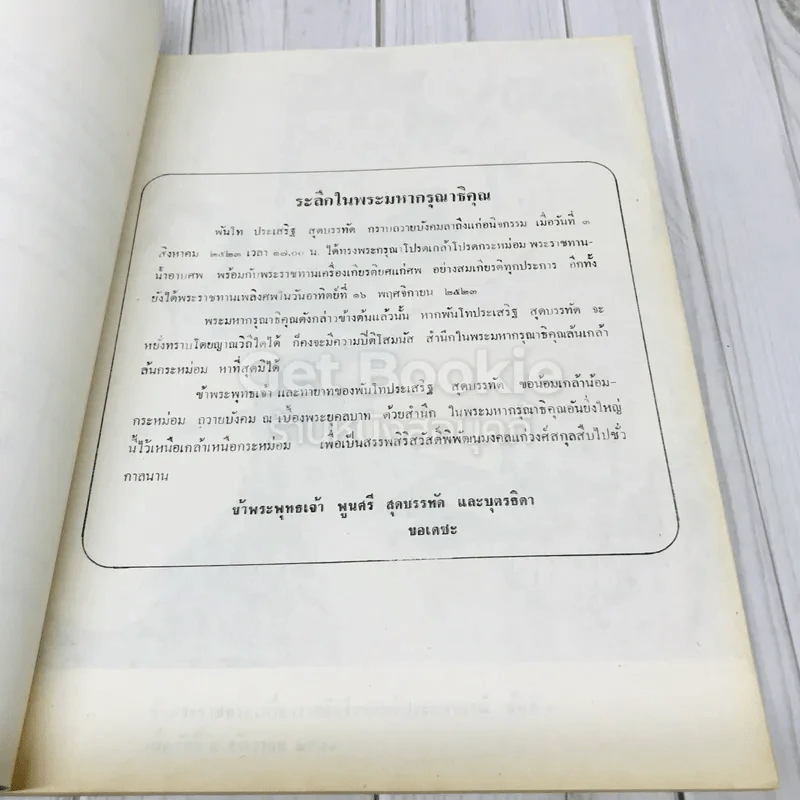 ระลึกในพระมหากรุณาธิคุณ
พันโท ประเสริฐ สุดบรรทัด กราบถวายบังคมลาถึงแก่อนิจกรรม เมื่อวันที่ ๓
สิงหาคม ๒๕๒๓ เวลา ๑๗.๐๐ น. ได้ทรงพระกรุณาโปรดเกล้าโปรดกระหม่อม พระราชทาน-
น้ำอาบศพ พร้อมกับพระราชทานเครื่องเกียรติยศแก่ศพ อย่างสมเกียรติทุกประการ อีกทั้ง
ยังได้พระราชทานเพลิงศพในวันอาทิตย์ที่ ๑๖ พฤศจิกายน ๒๕๒๓
พระมหากรุณาธิคุณดังกล่าวข้างต้นแล้วนั้น หากพันโทประเสริฐ สุดบรรทัด จะ
หยั่งทราบโดยญาณวิถีใดได้ ก็คงจะมีความปิติโสมนัส สำนึกในพระมหากรุณาธิคุณล้นเกล้า
ล้นกระหม่อม หาที่สุดมิได้
Get Bookie
ข้าพระพุทธเจ้า และทายาทของพันโทประเสริฐ สุดบรรทัด ขอน้อมเกล้าน้อม-
กระหม่อม ถวายบังคม ณ เบื้องพระยุคลบาท ด้วยสำนึก ในพระมหากรุณาธิคุณอันยิ่งใหญ่
นี้ไว้เหนือเกล้าเหนือกระหม่อม เพื่อเป็นสรรพสิริสวัสดิ์พิพัฒนมงคลแก่วงศ์สกุลสืบไปชั่ว
กาลนาน
ข้าพระพุทธเจ้า พูนศรี สุดบรรทัด และบุตรธิดา
ขอเดชะ